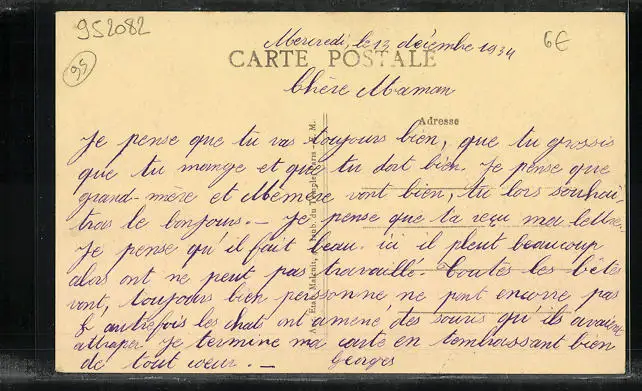 952082
95
6€
Mercredi, le 13 décembre 1934
CARTE POSTALE
Chère Maman
Adresse
Je pense que tu vas toujours bien, que tu grossis
que tu mange et que tu dort bien. Je pense que
grand-mère et Mémère vont bien, tu lors souhai-
tras le bonjours. — Je pense que ta reçu ma lettre.
Je pense qu'il fait beau. ici il pleut beaucoup
alors ont ne peut pas travaillé. Toutes les bêtes
vont, toujours bien personne ne pont encorre pas
& autrefois les chats ont amené des souris qu'ils avaient
attraper je termine ma carte en t'embrassant bien
de tout coeur. — Georges
Etab. Malcuit, faub. du Temple, Paris